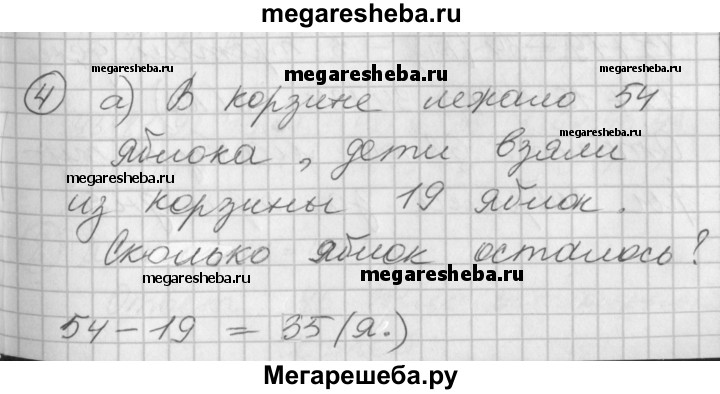 megaresheba.ru
megaresheba.ru megaresheba.ru megaresheba.ru
4 а) В корзине лежало 54
megaresheba.ru
яблока, дети взяли
megaresheba.ru
из корзины 19 яблок.
Сколько яблок осталось?
megaresheba.ru megaresheba.ru megaresheba.ru
54 - 19 = 35 (я.)
Мегарешеба.ру